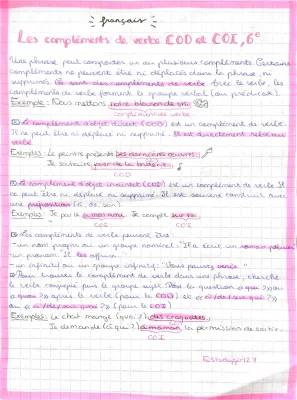 français
Les compléments de verbe COD et COI, 6e
Une phrase peut comporter un ou plusieurs compléments. Certains
compléments ne peuvent être ni déplacés dans la phrase, ni
supprimés. Ce sont des compléments de verbe. Avec le verbe, les
compléments de verbe forment le groupe verbal (ou prédicat).
Exemple: Nous mettons notre blouson de ski.
complément de verbe
Le complément d'objet direct (COD) est un complément de verbe.
Il ne peut être ni déplacé ni supprimé. Il est directement relié au
verbe.
Exemples: Le peintre présente ses dernières œuvres.
Je souhaite jouer de la batterie.
COD
Le complément d'objet indirect (COI) est un complément de verbe. Il
ne peut être ni déplacé ni supprimé. Il est souvent construit avec
une préposition (à, de, sur).
Exemples: Je parle à mon ami. Je compte sur toi.
COI COI
Les compléments de verbe peuvent être
-un nom propre ou un groupe nominal: "Il a écrit un roman policier"
-un pronom: Il les offense.
-un infinitif ou un groupe infinitif: "Vous pouvez venir."
Pour trouver le complément de verbe dans une phrase, cherche
le verbe conjugué puis le groupe sujet. Pose la question « que ?» ou
« quoi ?» après le verbe (pour le COD) et « à/de/sur qui ?»
ou « à/de/sur quoi ?» (pour le COI).
Exemples: Le chat mange (quoi?) des croquettes.
COD
Je demande (à qui?) à maman la permission de sortir.
COI